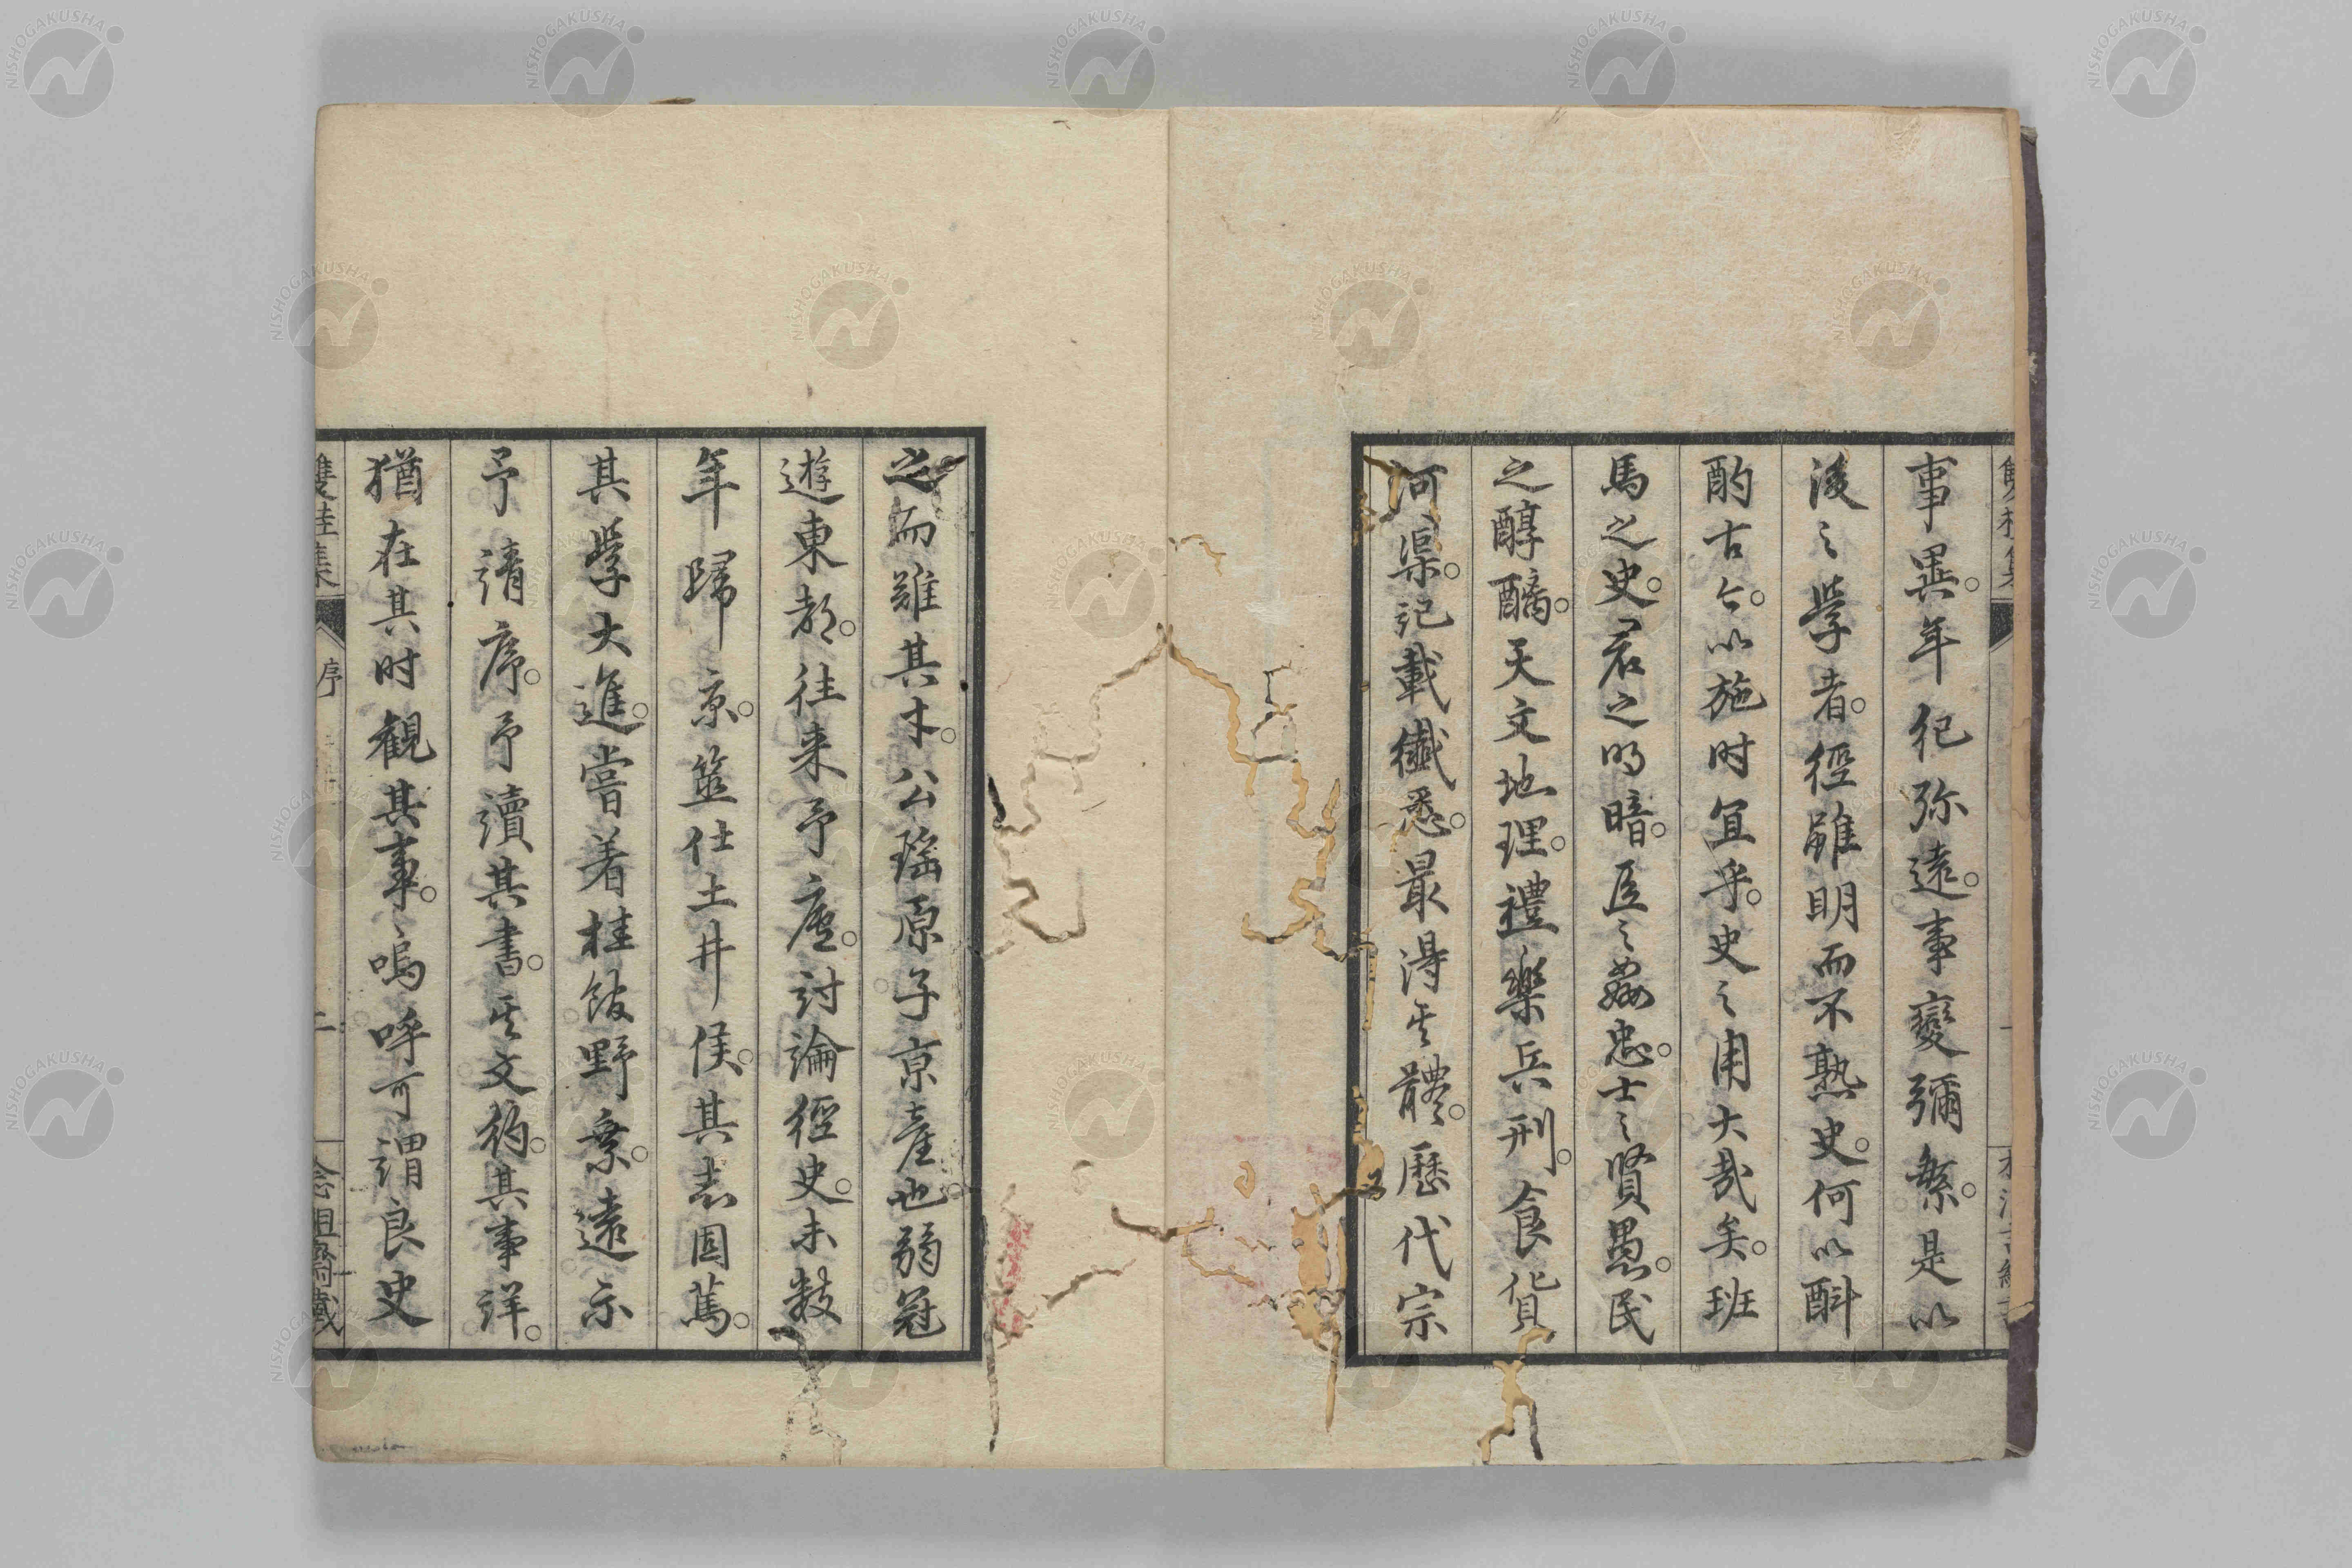 事異。年紀弥遠。事變彌繁。是以
後之學者。徑雖明而不熟史。何以斟
酌古今。以施时宜乎。史之用大哉矣。班
馬之史。君之明暗。臣之姦忠。士之賢愚。民
之醇醨。天文地理。禮樂兵刑。食貨
河渠。記載纎悉。最得其體。歷代宗
之而難其才。公瑶原子京產也。弱冠
遊東都。往来予廬。討論徑史。未數
年歸京。筮仕土井侯。其志固篤。
其學大進。嘗着桂館野乘。遠示
予請序。予讀其書。其文約。其事詳。
猶在其时観其事。嗚呼可謂良史
雙桂集 序 二 念祖齋藏
NISHOGAKUSHA